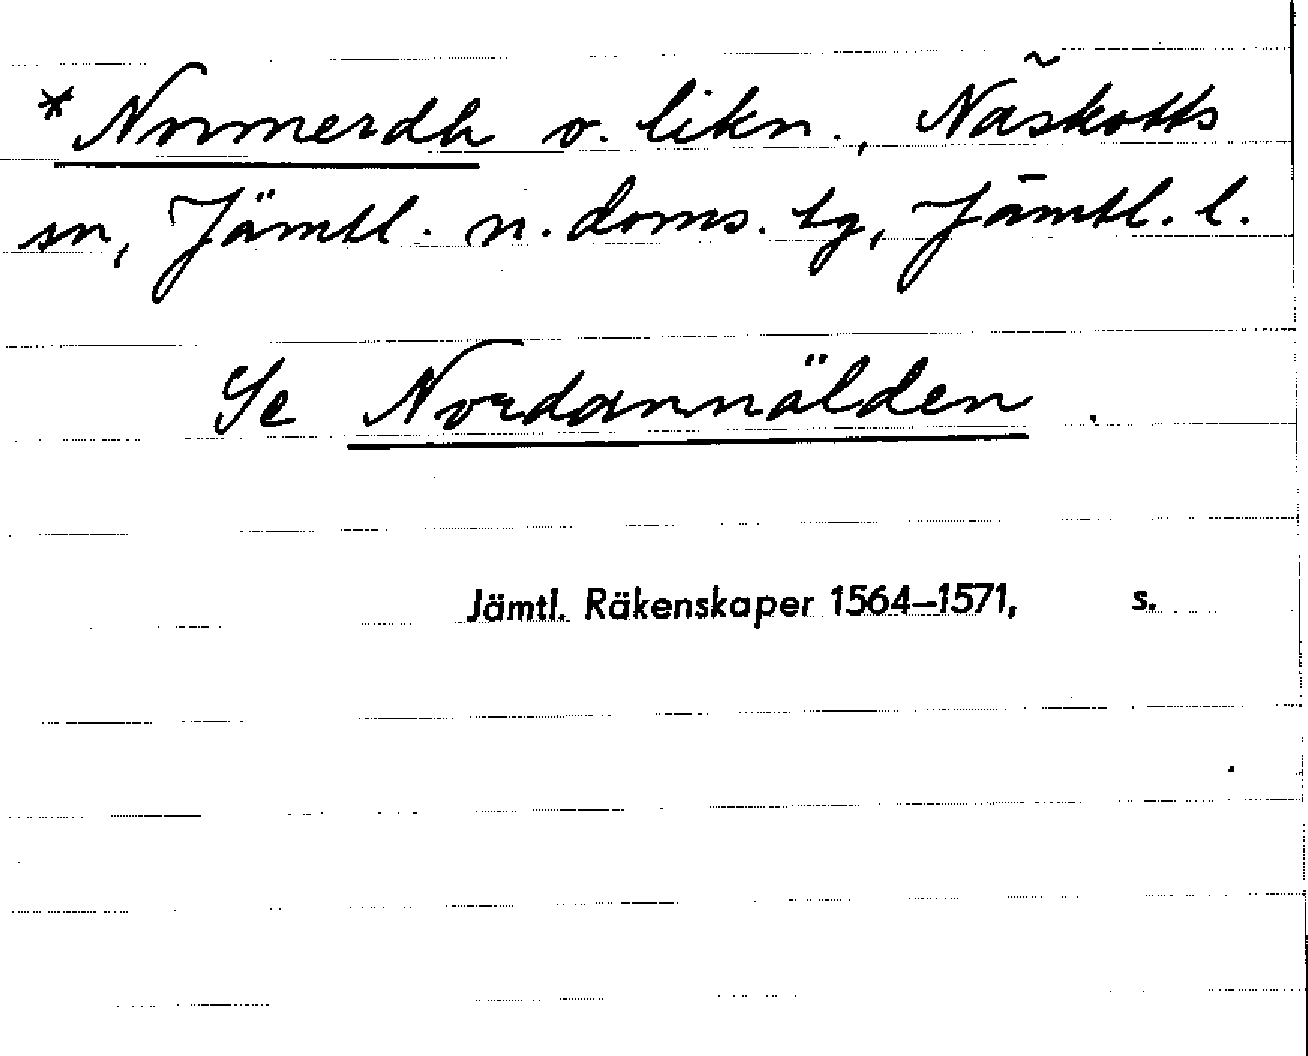 *Normerdh o. likn., Näskotts
sn, Jämtl. n. doms. tg, Jämtl. l.
Se Nordannälden.
Jämtl. Räkenskaper 1564–1571, s.